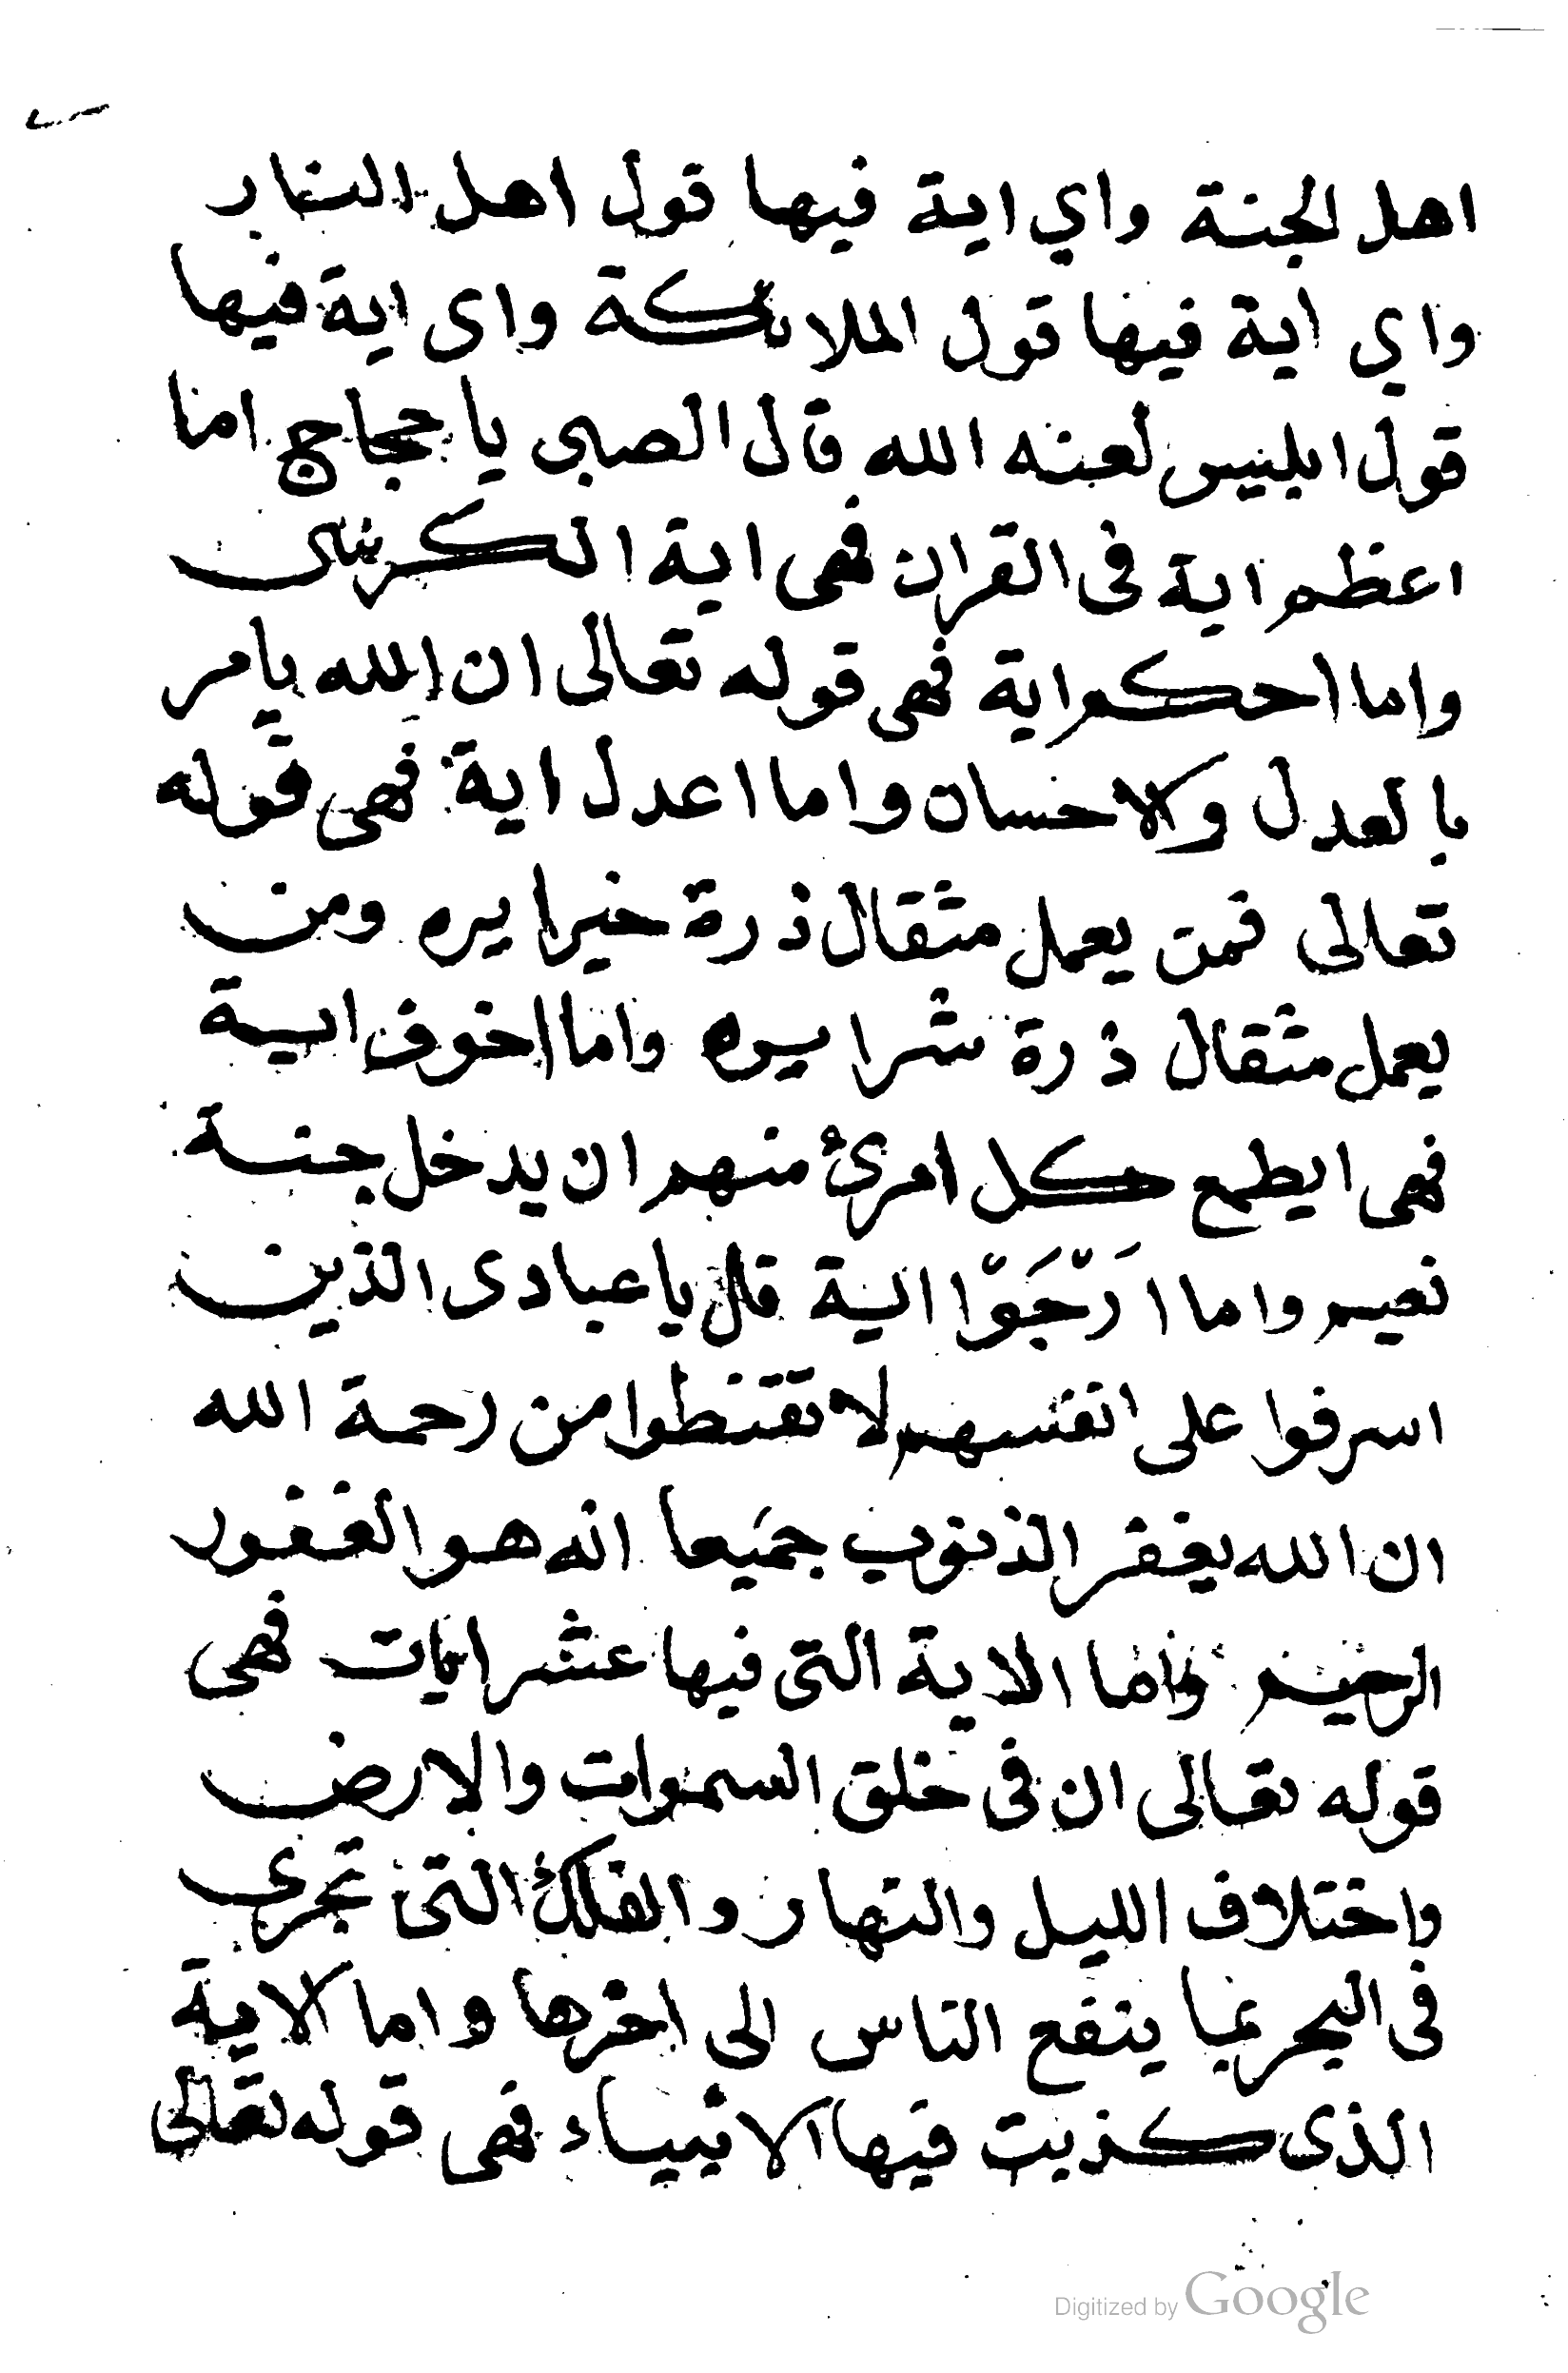 اهل الجنة واي اية فيها قول اهل النار
واي اية فيها قول الملائكة واى اية فيها
قول ابليس لعنه الله قال الصبى يا حجاج اما
اعظم اية فى القران فهى اية الكرسى
واما احكم اية فهى قوله تعالى ان الله يامر
بالعدل والاحسان واما اعدل اية فهى قوله
تعالى فمن يعمل مثقال ذرة خيرا يره ومن
يعمل مثقال ذرة شرا يره واما اخوف اية
فهى ايطمع كل امرئ منهم ان يدخل جنة
نعيم واما ارجوا اية قل يا عبادى الذين
اسرفوا على انفسهم لا تقنطوا من رحمة الله
ان الله يغفر الذنوب جميعا انه هو الغفور
الرحيم واما الاية التى فيها عشر ايات فهى
قوله تعالى ان فى خلق السموات والارض
واختلاف الليل والنهار والفلك التى تجرى
فى البحر بما ينفع الناس الى اخرها واما الاية
الذى كذبت فيها الانبياء فهى قوله تعالى
Digitized by Google